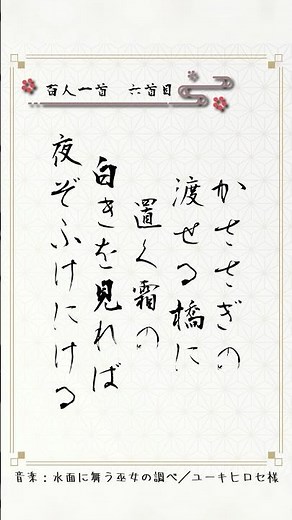 百人一首 六首目
かささぎの
渡せる橋に
置く霜の
白きを見れば
夜ぞふけにける
音楽：水面に舞う巫女の調べ／ユーキヒロセ様